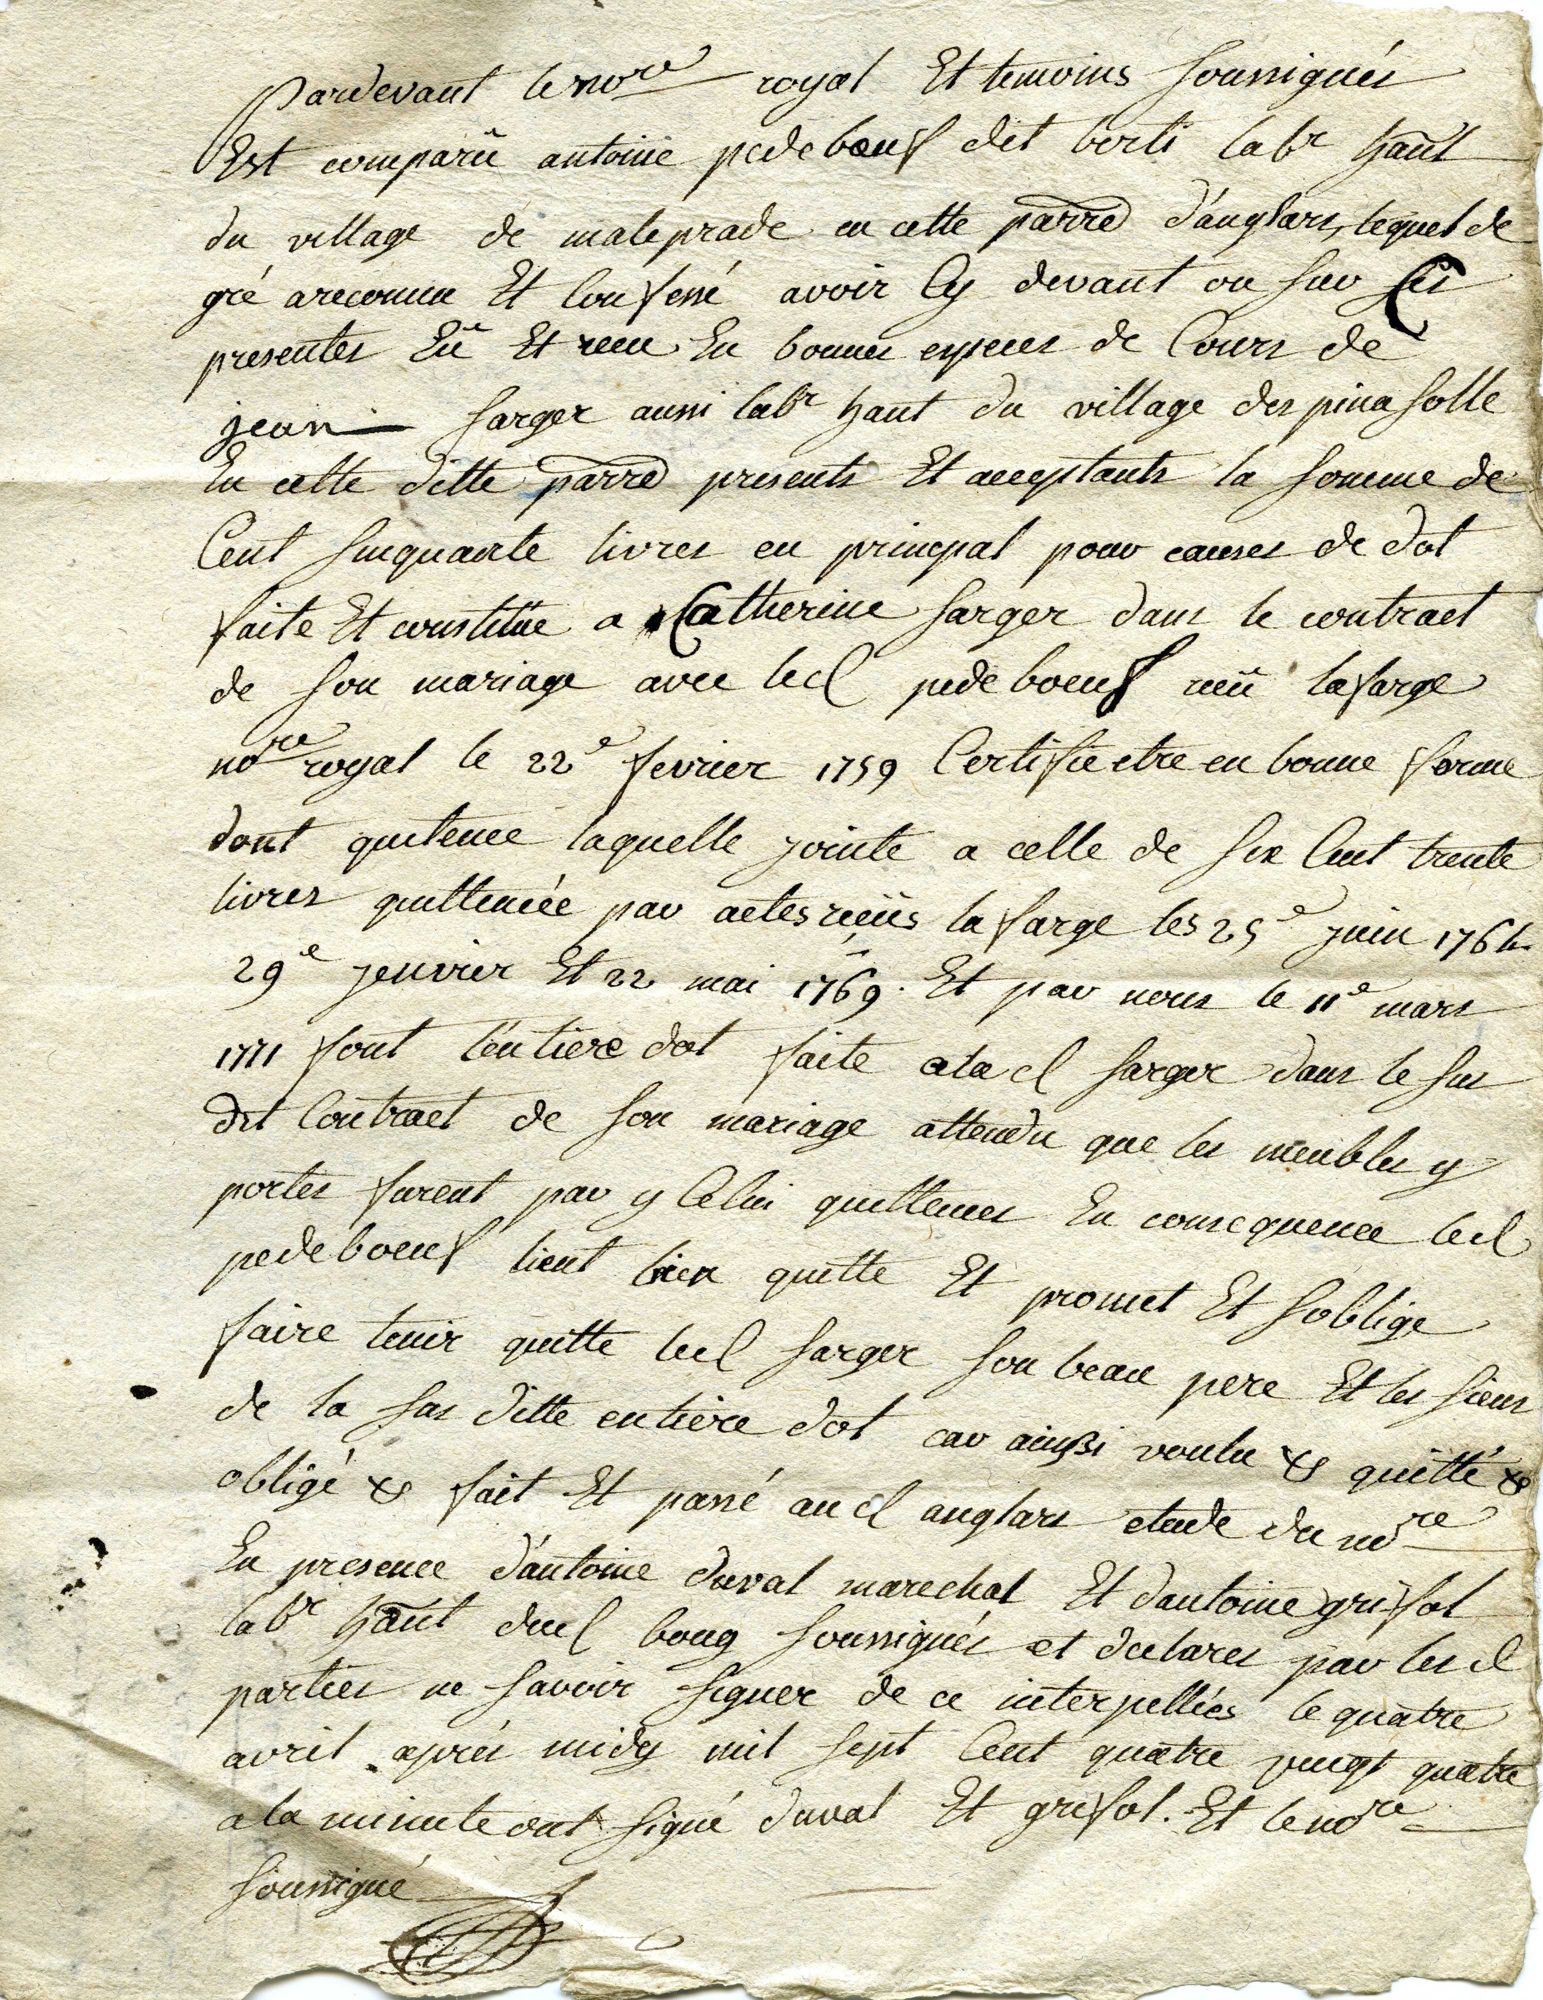 Pardevant le no.re royal Et temoins soussignés
Est comparû antoine pedeboeuf dit borli lab.r hānt
du village de maleprade en cette parr̄e d'anglars, lequel de
gré areconnu Et Confessé avoir Cy devant ou sur Ces
presentes Eû Et recu En bonnes especes de Cours de
jean sarger aussi lab.r hant du village despinasolle
En cette ditte parr̄e presents Et acceptants la somme de
Cent sinquante livres en principal pour causes de dot
faite Et constitüe a Catherine sarger dans le contract
de son mariage avec led pedeboeuf recû lafarge
no.re royal le 22e fevrier 1759 Certifie etre en bonne forme
dont quitence laquelle jointe a celle de six Cent trente
livres quittencée par actes reciis lafarge les 25e juin 1764
29e jenvier Et 22 mai 1769. Et par nous le 11e mars
1771 font l'entiere dot faite alad sarger dans le sus
dit Contract de son mariage attendu que les meubles y
portes furent par yCelui quittences En consequence led
pedeboeuf tient bien quitte Et promet Et soblige
faire tenir quitte led sarger son beau pere Et les siens
de la sus ditte entière dot car ainsi voulu & quitté &
obligé & fait Et passé aud anglars etude du no.re
En presence d'antoine duval marechal Et dantoine grifol
lab.r hānt dud bourg soussignés et declares par lesd
parties ne savoir signer de ce interpellées le quatre
avril après midy mil sept Cent quatre vingt quatre
a la minute ont signé duval Et grifol. Et le no.re
soussigné